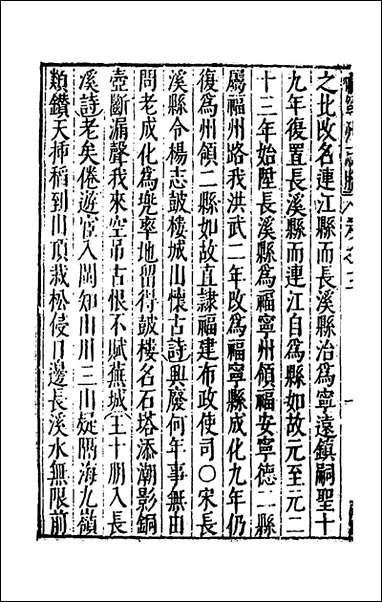 之北改名連江縣而長溪縣治為寧遠鎮嗣聖十
九年復置長溪縣而連江自為縣如故元至元二
十三年始陞長溪縣為福寧州領福安寧德二縣
屬福州路我洪武二年改為福寧縣成化九年仍
復為州領二縣如故直隸福建布政使司○宋長
溪縣令楊志皷樓城山懷古詩興廢何年事無由
問老成化為兠率地留得皷樓名石塔添潮影銅
壺斷漏聲我來空吊古恨不賦蕉城王十朋入長
溪詩老矣倦遊宦入閩知山川三山疑隔海九嶺
類鑚天揷稻到山頂栽松侵日邊長溪水無限前